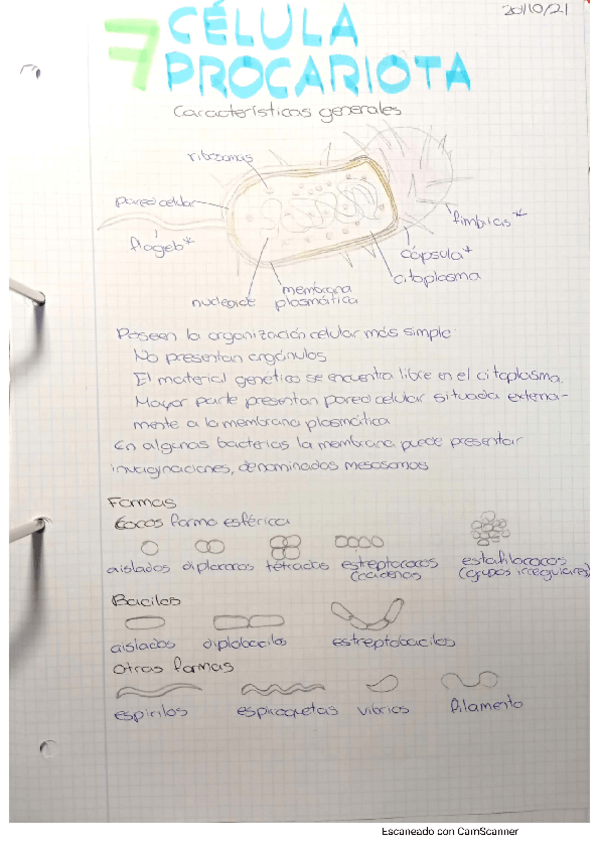 20/10/21
7 CÉLULA
PROCARIOTA
Características generales
ribosomas
pared celular
flagelo*
fimbrias*
cápsula*
citoplasma
membrana
plasmática
nucleoide
Poseen la organización celular más simple:
No presentan orgánulos
El material genético se encuentra libre en el citoplasma.
Mayor parte presentan pared celular situada externa-
mente a la membrana plasmática
En algunas bacterias la membrana puede presentar
invaginaciones, denominados mesosomas
Formas
Cocos forma esférica
aislados diplococos tétradas estreptococos estafilococos
(cadenas) (grupos irregulares)
Bacilos
aislados diplobacilos estreptobacilos
Otras formas
espirilos espiroquetas vibrios filamento
Escaneado con CamScanner